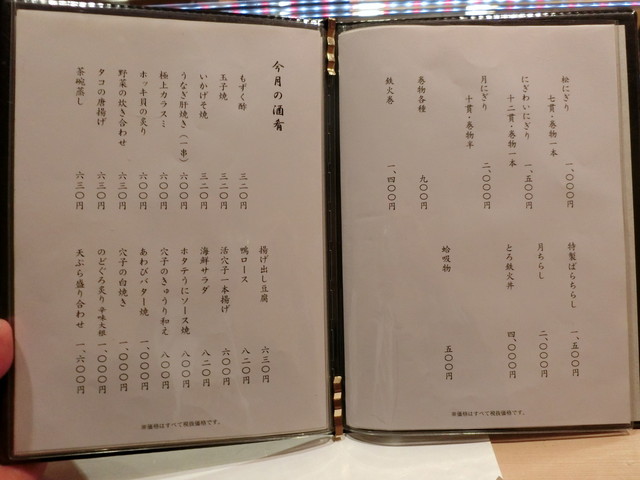 松にぎり
七貫・巻物一本 一、〇〇〇円
にぎわいにぎり
十二貫・巻物一本 一、五〇〇円
月にぎり
十貫・巻物半 二、〇〇〇円
巻物各種 九〇〇円
鉄火巻 一、四〇〇円
特製ばらちらし 一、五〇〇円
月ちらし 二、〇〇〇円
とろ鉄火丼 四、〇〇〇円
蛤吸物 五〇〇円
※価格はすべて税抜価格です。
今月の酒肴
もずく酢 三二〇円
玉子焼 三二〇円
いかげそ焼 三二〇円
うなぎ肝焼き(一串) 六〇〇円
極上カラスミ 六〇〇円
ホッキ貝の炙り 六〇〇円
野菜の炊き合わせ 六三〇円
タコの唐揚げ 六三〇円
茶碗蒸し 六三〇円
揚げ出し豆腐 六三〇円
鴨ロース 八二〇円
活穴子一本揚げ 六〇〇円
海鮮サラダ 八二〇円
ホタテうにソース焼 八〇〇円
穴子のきゅうり和え 八〇〇円
あわびバター焼 一、〇〇〇円
穴子の白焼き 一、〇〇〇円
のどぐろ炙り 辛味大根 一、〇〇〇円
天ぷら盛り合わせ 一、六〇〇円
※価格はすべて税抜価格です。